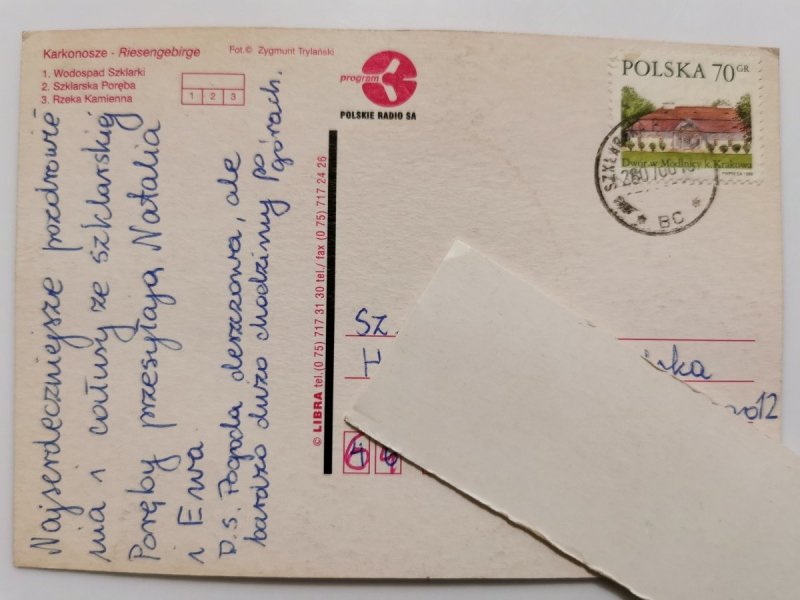 Karkonosze - Riesengebirge
Fot.© Zygmunt Trylański
1. Wodospad Szklarki
2. Szklarska Poręba
3. Rzeka Kamienna
1 2 3
program
POLSKIE RADIO SA
POLSKA 70 GR
Dwór w Modlnicy k. Krakowa
BC
Najserdeczniejsze pozdrowie
nia i całusy ze szklarskiej
Poręby przesyłają Natalia
i Ewa
P.S. Pogoda deszczowa, ale
bardzo dużo chodzimy po górach.
© LIBRA tel.(0 75) 717 31 30 tel./ fax (0 75) 717 24 26
Sz.
12